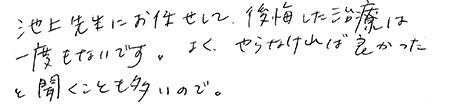 池上先生にお任せして、後悔した治療は
一度もないです。よく、やらなければ良かった
と聞くことも多いので。